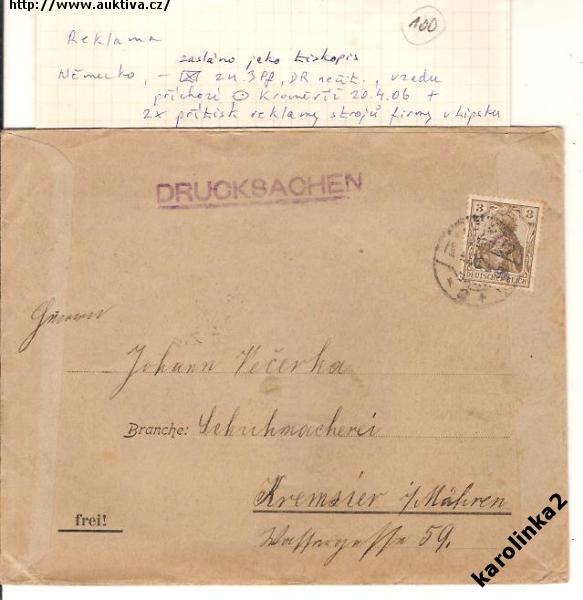 http://www.auktiva.cz/
100
Reklama
zasláno jako tiskopis
Německo, - zn. 3 Pf, DR nečit., vzadu
příchozí Kroměříž 20.4.06 +
2x přítisk reklamy strojů firmy v Lipsku
DRUCKSACHEN
3 3
DEUTSCHES REICH
Herrn
Johann Večerka
Branche: Schuhmacherei
Kremsier i/Mähren
frei!
Wassergasse 59.
karolinka2